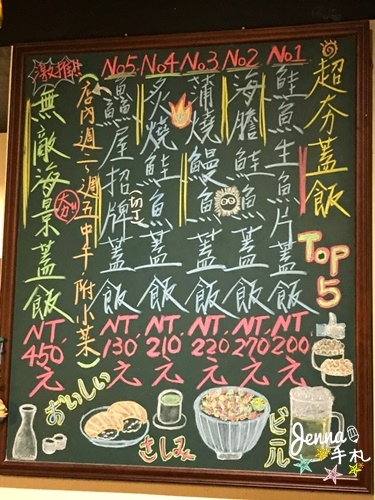 超夯蓋飯
Top 5
No1 鮭魚生魚片蓋飯 NT.200元
No2 海膽鮭魚蓋飯 NT.270元
No3 蒲燒鰻魚蓋飯 NT.220元
No4 炙燒鮭魚(切丁)蓋飯 NT.210元
No5 鱻屋招牌蓋飯 NT.130元
(店內週一~週五中午,附小菜)
激推!!
無敵海景蓋飯 夯!! NT.450元
おいしい
さしみ
ビール
Jenna
手札